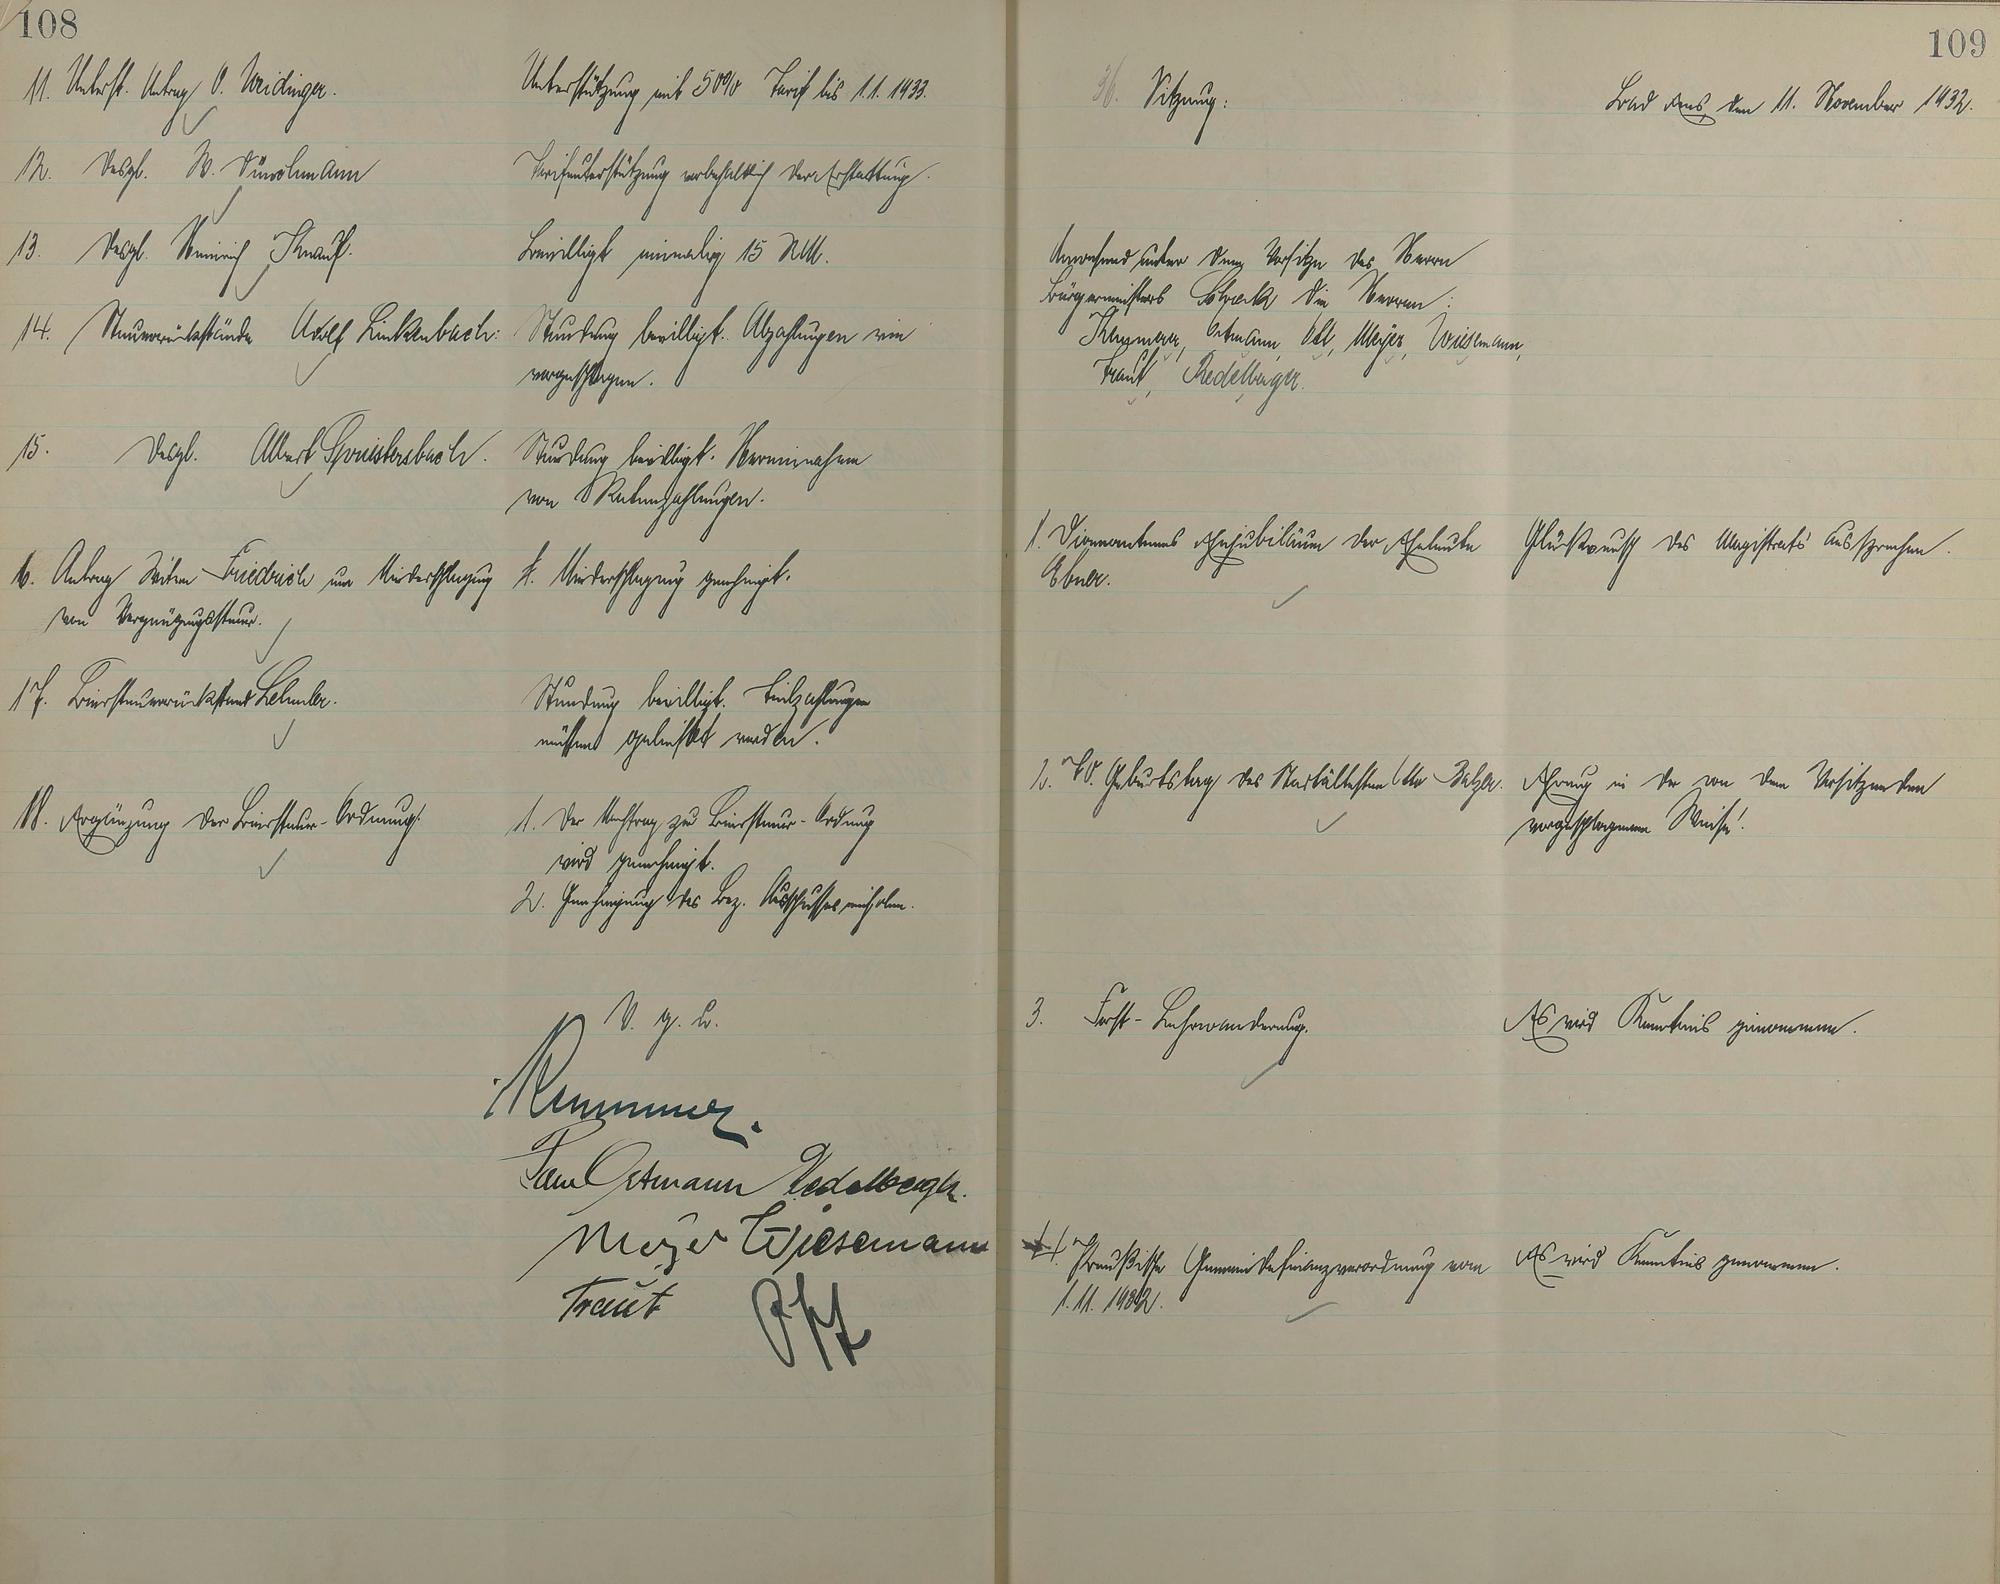 108
11. Unterst. Antrag O. Weidinger.
Unterstützung mit 50% Tarif bis 1.1.1933.
12. Desgl. W.
Tarifunterstützung vorbehaltlich der Erstattung.
13. Desgl. Heinrich Knauf.
Bewilligt einmalig 15 RM.
14. Steuerrückstände Adolf Linkenbach:
Stundung bewilligt. Abzahlungen wie
vorgeschlagen.
15. Desgl. Albert Spriestersbach.
Stundung bewilligt. Hereinnahme
von Ratenzahlungen.
16. Antrag Witwe Friedrich um Niederschlagung
von Vergnügungssteuer.
Niederschlagung genehmigt.
17. Biersteuerrückstand Lehmler.
Stundung bewilligt. Teilzahlungen
müssen geleistet werden.
18. Ergänzung der Biersteuer-Ordnung:
1. Der Nachtrag zur Biersteuer-Ordnung
wird genehmigt.
2. Genehmigung des Bez. Ausschusses einholen.
V. g. u.
Ortmann Redelberger.
Meyer Wiesemann
Traut Ott
109
36. Sitzung:
Bad Ems, den 11. November 1932.
Anwesend unter dem Vorsitze des Herrn
Bürgermeisters die Herren:
Ortmann, Ott, Meyer, Wiesemann,
Traut, Redelberger.
1. Diamantenes Ehejubiläum der Eheleute
Ebner.
Glückwunsch des Magistrats aussprechen.
2. 70. Geburtstag des Stadtältesten Otto Balzer.
Ehrung in der von dem Vorsitzenden
vorgeschlagenen Weise!
3. Forst-Lehrwanderung.
Es wird Kenntnis genommen.
4. Preußische Gemeindefinanzverordnung vom
1.11.1932.
Es wird Kenntnis genommen.